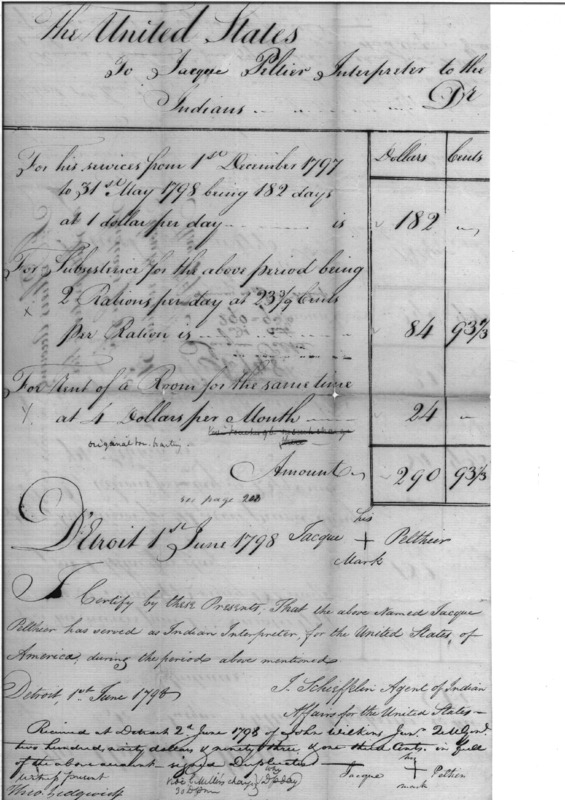 The United States
To Jacque Peltier Interpreter to the
Indians Dr
Dollars Cents
For his services from 1st December 1797
to 31st May 1798 being 182 days
at 1 dollar per day is 182 "
For Subsistence for the above period being
2 Rations per day at 23 3/9 Cents
per Ration is 84 93 1/3
For Rent of a Room for the same time
at 4 Dollars per Month 24 "
original
Amount 290 93 1/3
see page 203
D'Etroit 1st June 1798 Jacque his + Mark Pelthier
I Certify by these Presents, That the above Named Jacque
Pelthier has served as Indian Interpreter, for the United States, of
America, during the periods above mentioned
Detroit, 1st June 1798
J. Schieffelin Agent of Indian
Affairs for the United States
Received at Detroit 2d June 1798 of John Wilkins Junr. 2r M Genl.
two hundred ninety dollars & ninety three, & one third Cents, in full
of the above account signed Duplicates
witness present
Theo. Sedgwick
Jacque his + mark Peltier